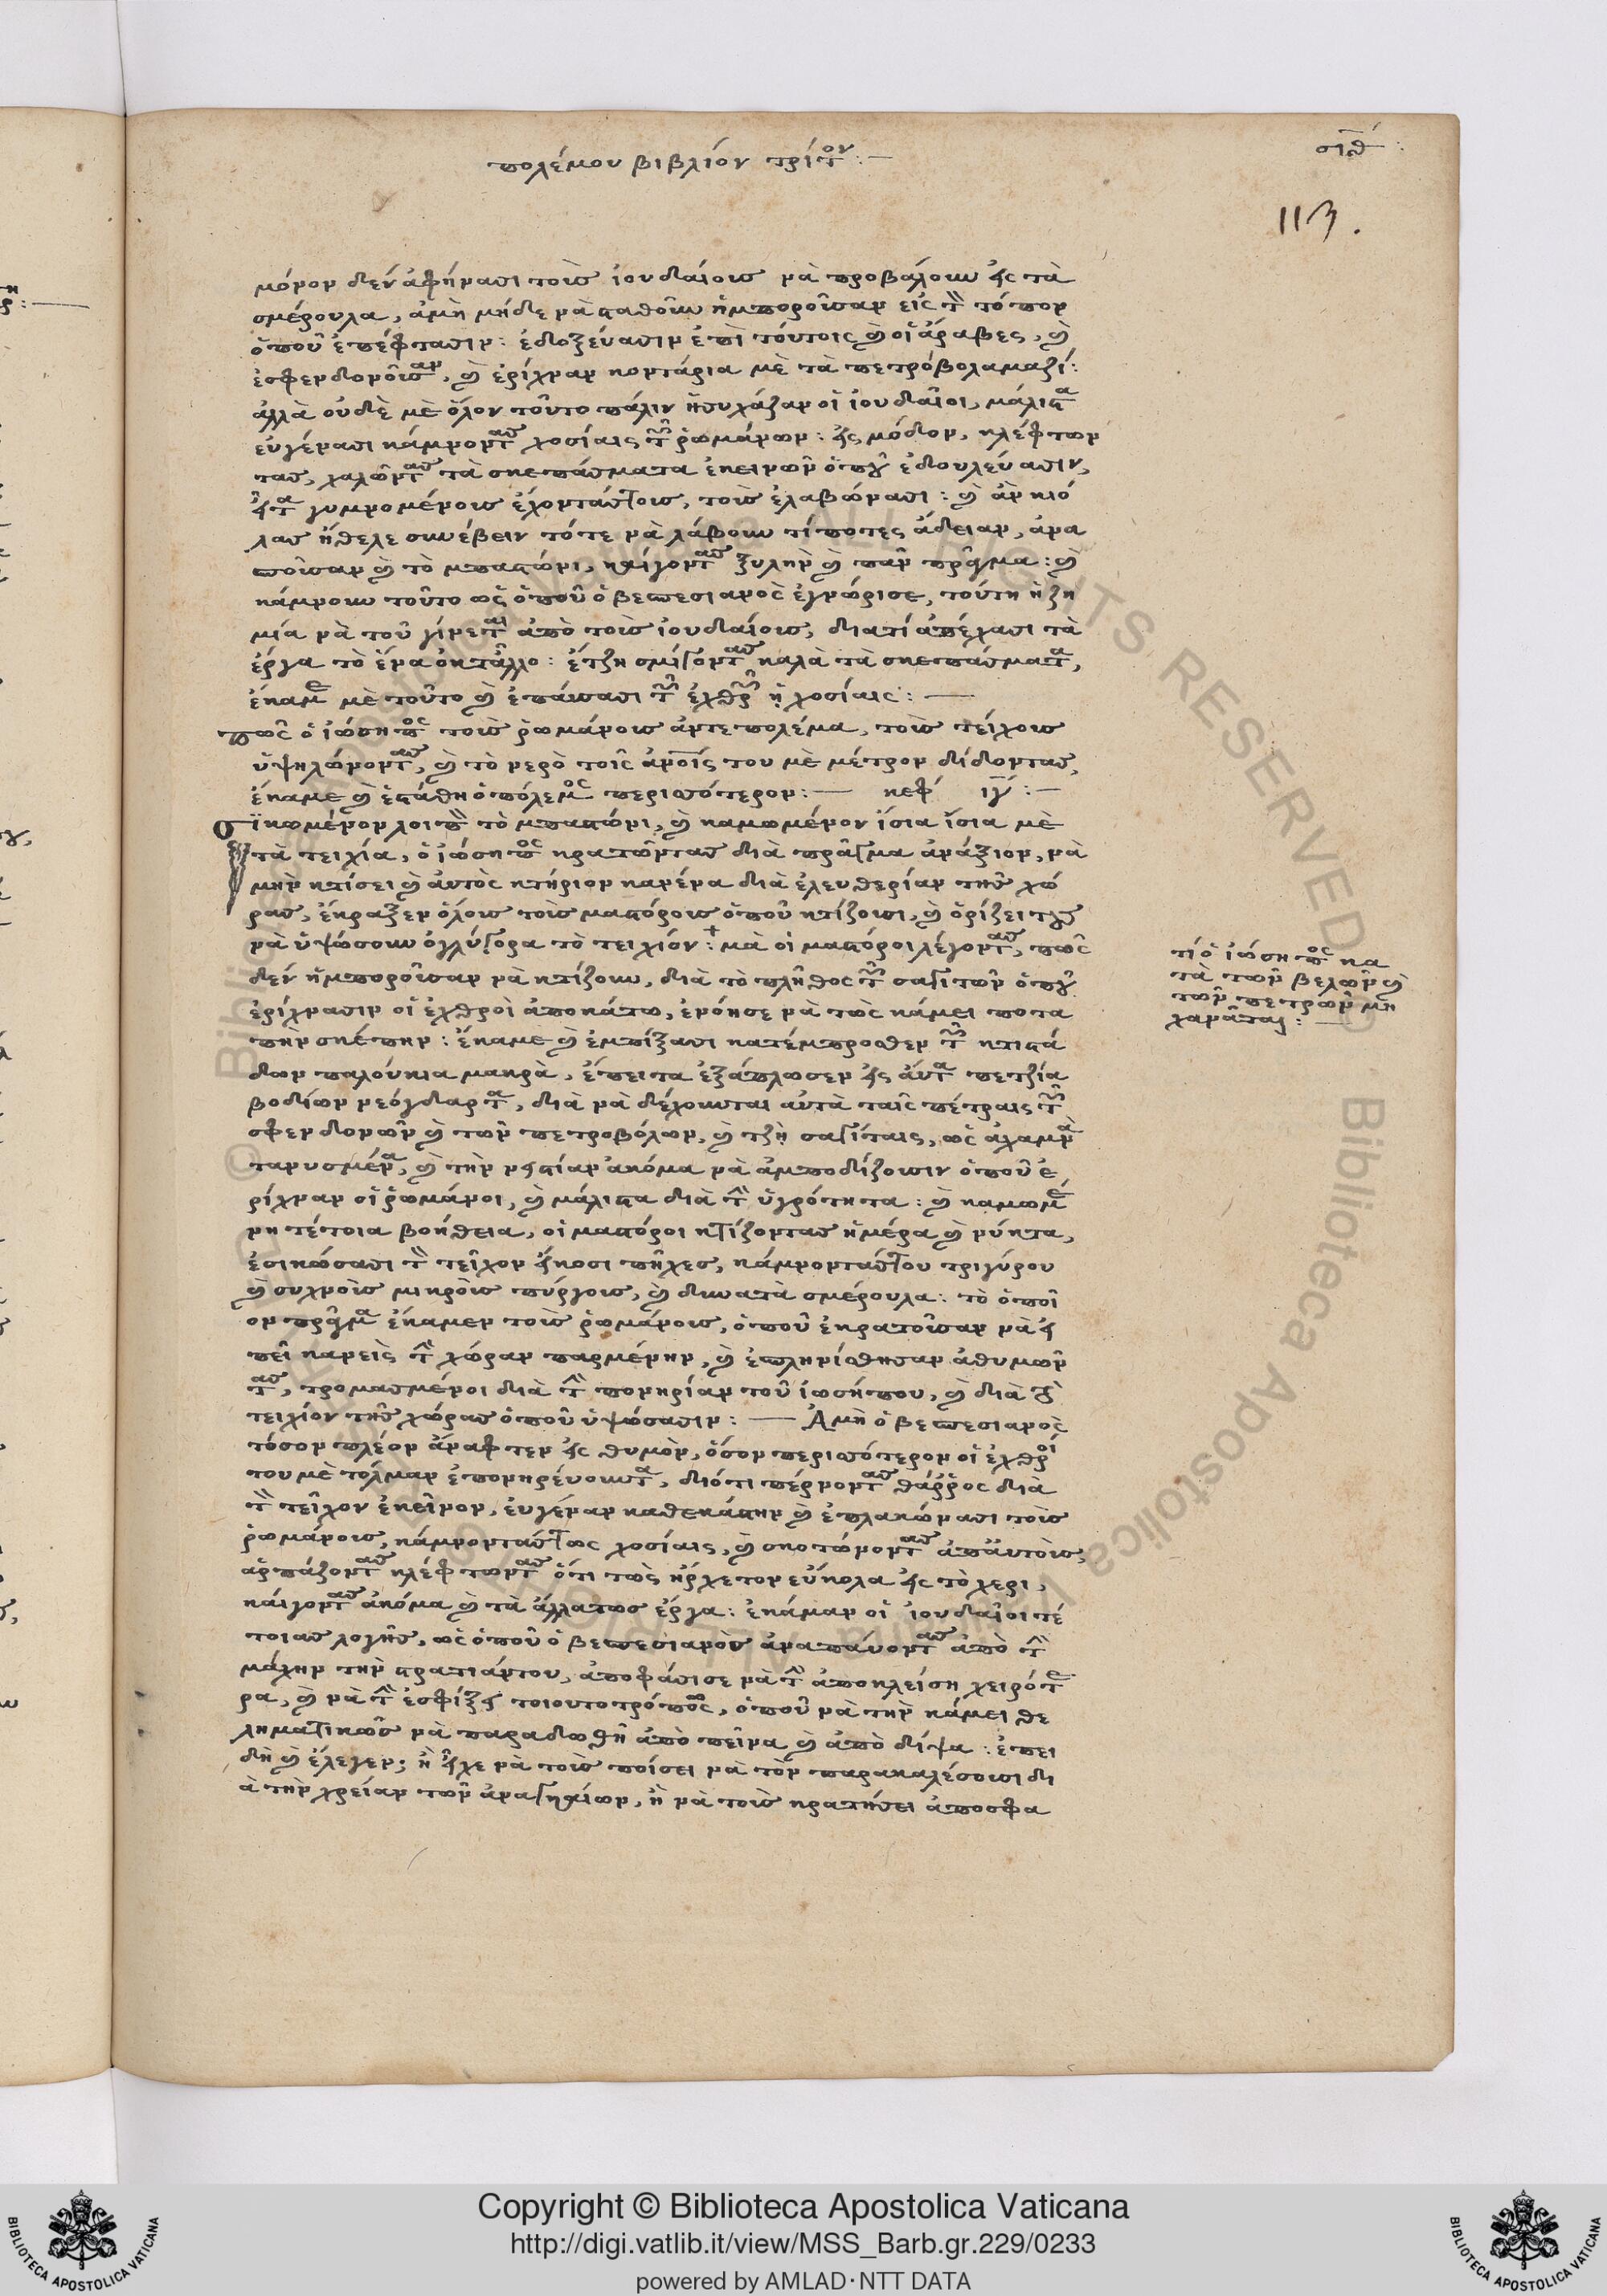 πολέμου βιβλίον τρίτον :—
σιθ :
113.
μόνον δὲν ἀφήνασι τοὺς ἰουδαίους νὰ προβαίνουν εἰς τὰ
σμέρουλα, ἀμὴ μήδε νὰ σταθοῦν ἠμποροῦσαν εἰς τὸν τόπον
ὁποῦ ἐπέφτασιν : ἐδοξεύασιν ἐπὶ τούτοις καὶ οἱ ἄραβες, καὶ
ἐσφενδονοῦσαν, καὶ ἐρίχναν κοντάρια μὲ τὰ πετρόβολα μαζί :
ἀλλὰ οὐδὲ μὲ ὅλον τοῦτο πάλιν ἡσυχάζαν οἱ ἰουδαῖοι, μάλιστα
εὐγένασι κάμνοντας χοσίαις τῶν ῥωμάνων : εἰς μόδον, κλέφτων
τας, χαλῶντας τὰ σκεπάσματα ἐκεινῶν ὁποῦ ἐδουλεύασιν,
εἶτα γυμνομένους ἔχοντάς τους, τοὺς ἐλαβώνασι : καὶ ἂν κιό
λας ἤθελε συνέβειν τότε νὰ λάβουν τίποτες ἄδειαν, ἀνα
ποῦσαν καὶ τὸ μπαστιόνι, καίγοντας ξυλὴν καὶ πᾶν πρᾶγμα : καὶ
κάμνουν τοῦτο ὡς ὁποῦ ὁ βεσπεσιανὸς ἐγνώρισε, τούτη ἡ ζη
μία νὰ τοῦ γίνεται ἀπὸ τοὺς ἰουδαίους, διατί ἀπέχασι τὰ
ἔργα τὸ ἕνα ὀκ τἄλλο : ἔτζη σμίγοντας καλὰ τὰ σκεπάσματα,
ἔκαμε μὲ τοῦτο καὶ ἐπαύσασι τῶν ἐχθρῶν ἡ χοσίαις : —
πῶς ὁ ἰώσηπος τοὺς ῥωμάνους ἀντεπολέμα, τοὺς τείχους
ὑψηλώνοντας, καὶ τὸ νερὸ τοῖς ἀνοῖς του μὲ μέτρον δίδοντας,
ἔκαμε καὶ ἐστάθη ὁ πόλεμος περισσότερον : — κεφ ιγ : —
Σικωμένον λοιπὸν τὸ μπαστιόνι, καὶ καμωμένον ἴσια ἴσια μὲ
τὰ τειχία, ὁ ἰώσηπος κρατῶντας διὰ πρᾶγμα ἀνάξιον, νὰ
μὴν κτίσει καὶ αὐτὸς κτήριον κανένα διὰ ἐλευθερίαν τῆς χώ
ρας, ἔκραξεν ὅλους τοὺς μαστόρους ὁποῦ κτίζουσι, καὶ ὁρίζει τους
νὰ ὑψώσουν ὀγλύγορα τὸ τειχίον : μὰ οἱ μαστόροι λέγοντας, πῶς
δὲν ἠμποροῦσαν νὰ κτίζουν, διὰ τὸ πλῆθος τῶν σαγιτῶν ὁποῦ
ἐρίχνασιν οἱ ἐχθροὶ ἀποκάτω, ἐνόησε νὰ τῶς κάμει ποτα
πὴν σκέπην : ἔκαμε καὶ ἐμπίξασι κατέμπροσθεν τῶν κτιστά
δων παλούκια μακρὰ, ἔπειτα ἐξάπλωσεν εἰς αὐτὰ πετζία
βοδίων νεόγδαρτα, διὰ νὰ δέχουνται αὐτὰ ταῖς πέτραις τῶν
σφενδονῶν καὶ τῶν πετροβόλων, καὶ τζὴ σαγίταις, ὡς ἀχαμνὰ
τανυσμένα, καὶ τὴν νηστίαν ἀκόμα νὰ ἀμποδίζουσιν ὁποῦ ἐ
ρίχναν οἱ ῥωμάνοι, καὶ μάλιστα διὰ τὴν ὑγρότητα : καὶ καμωμέ
νη τέτοια βοήθεια, οἱ μαστόροι κτίζοντας ἡμέρα καὶ νύκτα,
ἐσικώσασι τὸν τεῖχον εἴκοσι πῆχες, κάμνοντάς του τριγύρου
καὶ συχνοὺς μικροὺς πύργους, καὶ δυνατὰ σμέρουλα : τὸ ὁποῖ
ον πρᾶγμα ἔκαμεν τοὺς ῥωμάνους, ὁποῦ ἐκρατοῦσαν νὰ εἰ
πεῖ κανεὶς τὴν χώραν παρμένην, καὶ ἐπληρίσθησαν ἀθυμῶν
τας, τρομασμένοι διὰ τὴν πονηρίαν τοῦ ἰωσήπου, καὶ διὰ τὸ
τειχίον τῆς χώρας ὁποῦ ὑψώσασιν : — Ἀμὴ ὁ βεσπεσιανὸς
τόσον πλέον ἄναφτεν εἰς θυμὸν, ὅσον περισσότερον οἱ ἐχθροί
του μὲ τόλμαν ἐπονηρένουντα, διότι πέρνοντας θάρρος διὰ
τὸν τεῖχον ἐκεῖνον, εὐγέναν καθεκάστην καὶ ἐπλακώνασι τοὺς
ῥωμάνους, κάμνοντάς τως χοσίαις, καὶ σκοτώνοντας ἀπ αὐτοὺς,
ἁρπάζοντας κλέφτωντας ὅτι τῶς ἤρχετον εὔκολα εἰς τὸ χέρι,
καίγοντας ἀκόμα καὶ τὰ ἄλλα τως ἔργα : ἐκάμαν οἱ ἰουδαῖοι τέ
τοιας λογῆς, ὡς ὁποῦ ὁ βεσπεσιανὸς ἀναπάνοντας ἀπὸ τὴν
μάχην τὴν στρατιάν του, ἀποφάσισε νὰ τὴν ἀποκλείση χειρότε
ρα, καὶ νὰ τὴν ἐσφίξει τοιουτοτρόπως, ὁποῦ νὰ τὴν κάμει θε
ληματικῶς νὰ παραδωθῆ ἀπὸ πεῖνα καὶ ἀπὸ δίψα : ἐπει
δὴ καὶ ἔλεγεν; ἢ εἶχε νὰ τοὺς ποίσει νὰ τὸν παρακαλέσουσι δι
ὰ τὴν χρείαν τῶν ἀναγκαίων, ἢ νὰ τοὺς κρατήσει ἀποσφα
τί ὁ ἰώσηπος κα
τὰ τῶν βελῶν καὶ
τῶν πετρῶν μη
χανᾶται : —
Copyright © Biblioteca Apostolica Vaticana
http://digi.vatlib.it/view/MSS_Barb.gr.229/0233
powered by AMLAD·NTT DATA
BIBLIOTECA APOSTOLICA VATICANA
BIBLIOTECA APOSTOLICA VATICANA